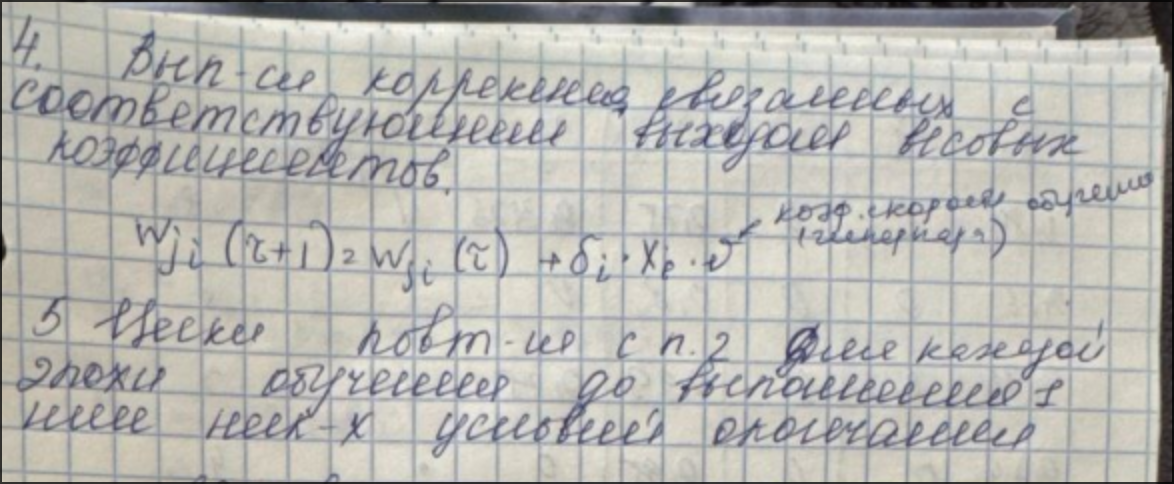 4. Вып-ся коррекция, связанных с
соответствующими выходами весовых
коэффициентов.
коэф. скорости обучения
(гиперпар-р)
Wji (τ+1) = Wji (τ) + δi · Xi · υ
5 Циклы повт-ия с п. 2 для каждой
эпохи обучения до выполнения 1
или неск-х условий окончания